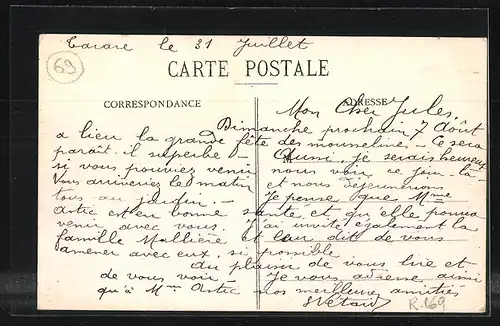 Tarare le 31 Juillet
69
CARTE POSTALE
CORRESPONDANCE
ADRESSE
Mon Cher Jules,
Dimanche prochain 7 Août
a lieu la grande fête des mousseline, - ce sera
paraît-il superbe - Aussi, je serais heureux
si vous pouviez venir nous voir ce jour-là
Vous arriveriez le matin et nous déjeunerions
tous au jardin. - Je pense que Mme
Artic est en bonne santé et qu'elle pourra
venir avec vous. J'ai invité également la
famille Mallière et leur dit de vous
amener avec eux, si possible
Au plaisir de vous lire et
de vous voir - Je vous adresse ainsi
qu'à Mme Artic nos meilleures amitiés
R.169